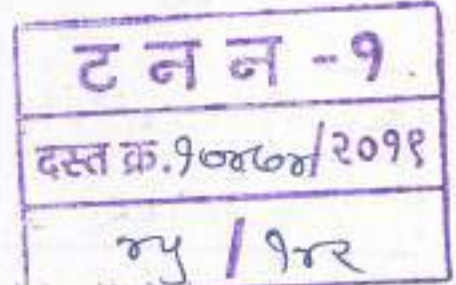 ट न न - १
दस्त क्र. १७४७४/२०१९
४५ / १४२